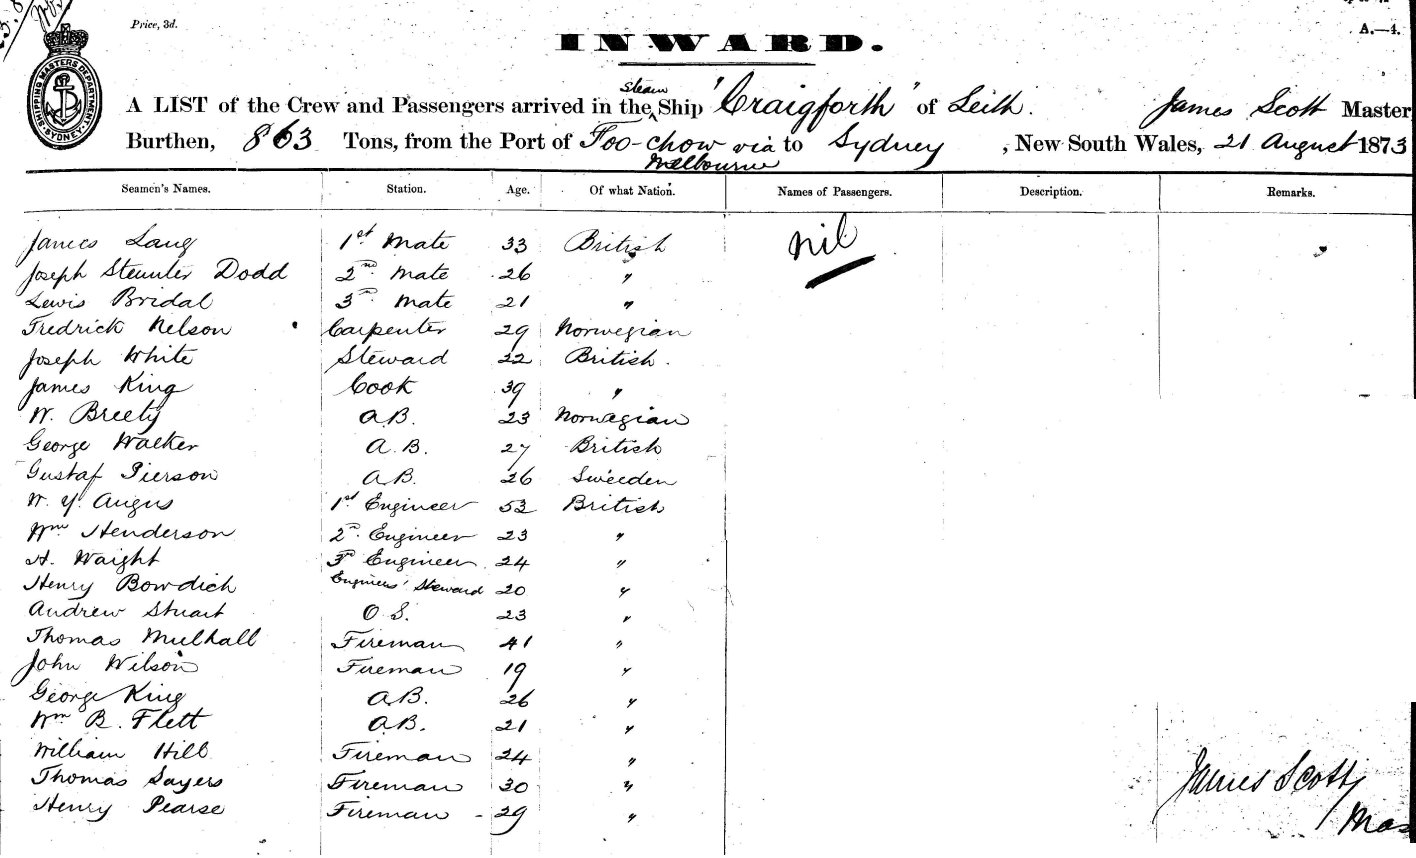 Price, 3d.
A.—4.
SHIPPING MASTERS DEPARTMENT SYDNEY
INWARD.
steam
A LIST of the Crew and Passengers arrived in the Ship "Craigforth" of Leith. James Scott Master
Burthen, 863 Tons, from the Port of Foo-chow via to Sydney, New South Wales, 21 August 1873
Melbourne
Seamen's Names. Station. Age. Of what Nation. Names of Passengers. Description. Remarks.
James Lang 1st Mate 33 British nil
Joseph Dodd 2nd Mate 26 "
Lewis Bridal 3rd Mate 21 "
Fredrick Nelson Carpenter 29 Norwegian
Joseph White Steward 22 British.
James King Cook 39 "
W. Breety A.B. 23 Norwegian
George Walker A.B. 27 British
Gustaf Pierson A.B. 26 Sweeden
W. Y. Angus 1st Engineer 53 British
Wm Henderson 2nd Engineer 23 "
H. Waight 3rd Engineer 24 "
Henry Bowdich Engineers' Steward 20 "
Andrew Stuart O.S. 23 "
Thomas Mulhall Fireman 41 "
John Wilson Fireman 19 "
George King A.B. 26 "
Wm B. Flett A.B. 21 "
William Hill Fireman 24 "
Thomas Sayers Fireman 30 "
Henry Pearse Fireman - 29 "
James Scott
Mas